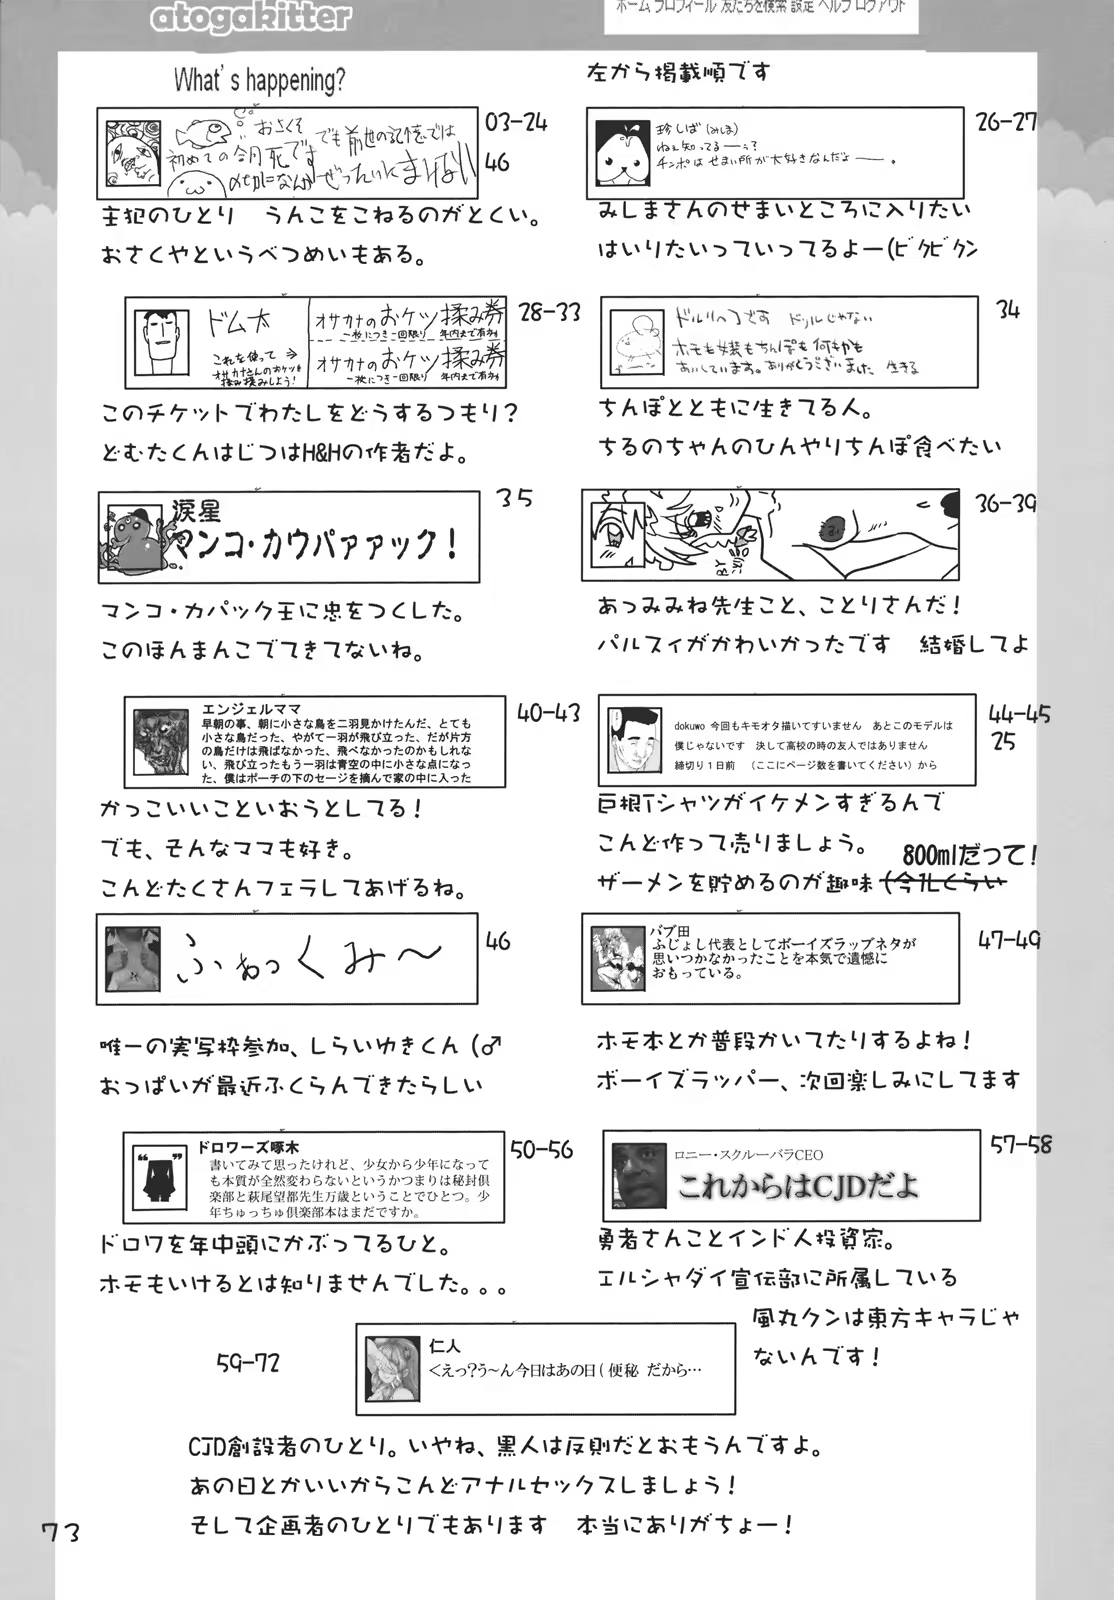 atogakitter
ホーム プロフィール 友だちを検索 設定 ヘルプ ログアウト
What's happening?
左から掲載順です
おさくそ
初めての今月死です
でも前世の記憶では
ぜったいに
03-24
46
主犯のひとり　うんこをこねるのがとくい。
おさくやというべつめいもある。
珍しば(みしま)
ねぇ知ってるーぅ?
チンポはせまい所が大好きなんだよ――。
26-27
みしまさんのせまいところに入りたい
はいりたいっていってるよー(ビクビクン
ドム太
これを使って⇒
オサカナさんのおケツを
揉み揉みしよう!
オサカナのおケツ揉み券
一枚につき一回限り　年内まで有効
オサカナのおケツ揉み券
一枚につき一回限り　年内まで有効
28-33
このチケットでわたしをどうするつもり?
どむたくんはじつはH&Hの作者だよ。
です　ドリルじゃない
ホモも嫁もちんぽも何もかも
あいしています。ありがとうございました　生きる
34
ちんぽとともに生きてる人。
ちるのちゃんのひんやりちんぽ食べたい
涙星
マンコ・カウパァァック!
35
マンコ・カパック王に忠をつくした。
このほんまんこでてきてないね。
BY
36-39
あつみみね先生こと、ことりさんだ!
パルスィがかわいかったです　結婚してよ
エンジェルママ
早朝の事、朝に小さな鳥を二羽見かけたんだ、とても
小さな鳥だった、やがて一羽が飛び立った、だが片方
の鳥だけは飛ばなかった、飛べなかったのかもしれな
い、飛び立ったもう一羽は青空の中に小さな点になっ
た、僕はポーチの下のセージを摘んで家の中に入った
40-43
かっこいいこといおうとしてる!
でも、そんなママも好き。
こんどたくさんフェラしてあげるね。
dokuwo 今回もキモオタ描いてすいません　あとこのモデルは
僕じゃないです　決して高校の時の友人ではありません
締切り１日前　（ここにページ数を書いてください）から
44-45
25
巨根Tシャツがイケメンすぎるんで
こんど作って売りましょう。
800mlだって!
ザーメンを貯めるのが趣味
ふぁっくみ～
46
唯一の実写枠参加、しらいゆきくん(♂
おっぱいが最近ふくらんできたらしい
バブ田
ふじょし代表としてボーイズラップネタが
思いつかなかったことを本気で遺憾に
おもっている。
47-49
ホモ本とか普段かいてたりするよね!
ボーイズラッパー、次回楽しみにしてます
ドロワーズ啄木
書いてみて思ったけれど、少女から少年になって
も本質が全然変わらないというかつまりは秘封倶
楽部と萩尾望都先生万歳ということでひとつ。少
年ちゅっちゅ倶楽部本はまだですか。
50-56
ドロワを年中頭にかぶってるひと。
ホモもいけるとは知りませんでした。。。
ロニー・スクルーバラCEO
これからはCJDだよ
57-58
勇者さんことインド人投資家。
エルシャダイ宣伝部に所属している
風丸クンは東方キャラじゃ
ないんです!
仁人
<えっ?う～ん今日はあの日( 便秘 だから…
59-72
CJD創設者のひとり。いやね、黒人は反則だとおもうんですよ。
あの日とかいいからこんどアナルセックスしましょう!
そして企画者のひとりでもあります　本当にありがちょー!
73